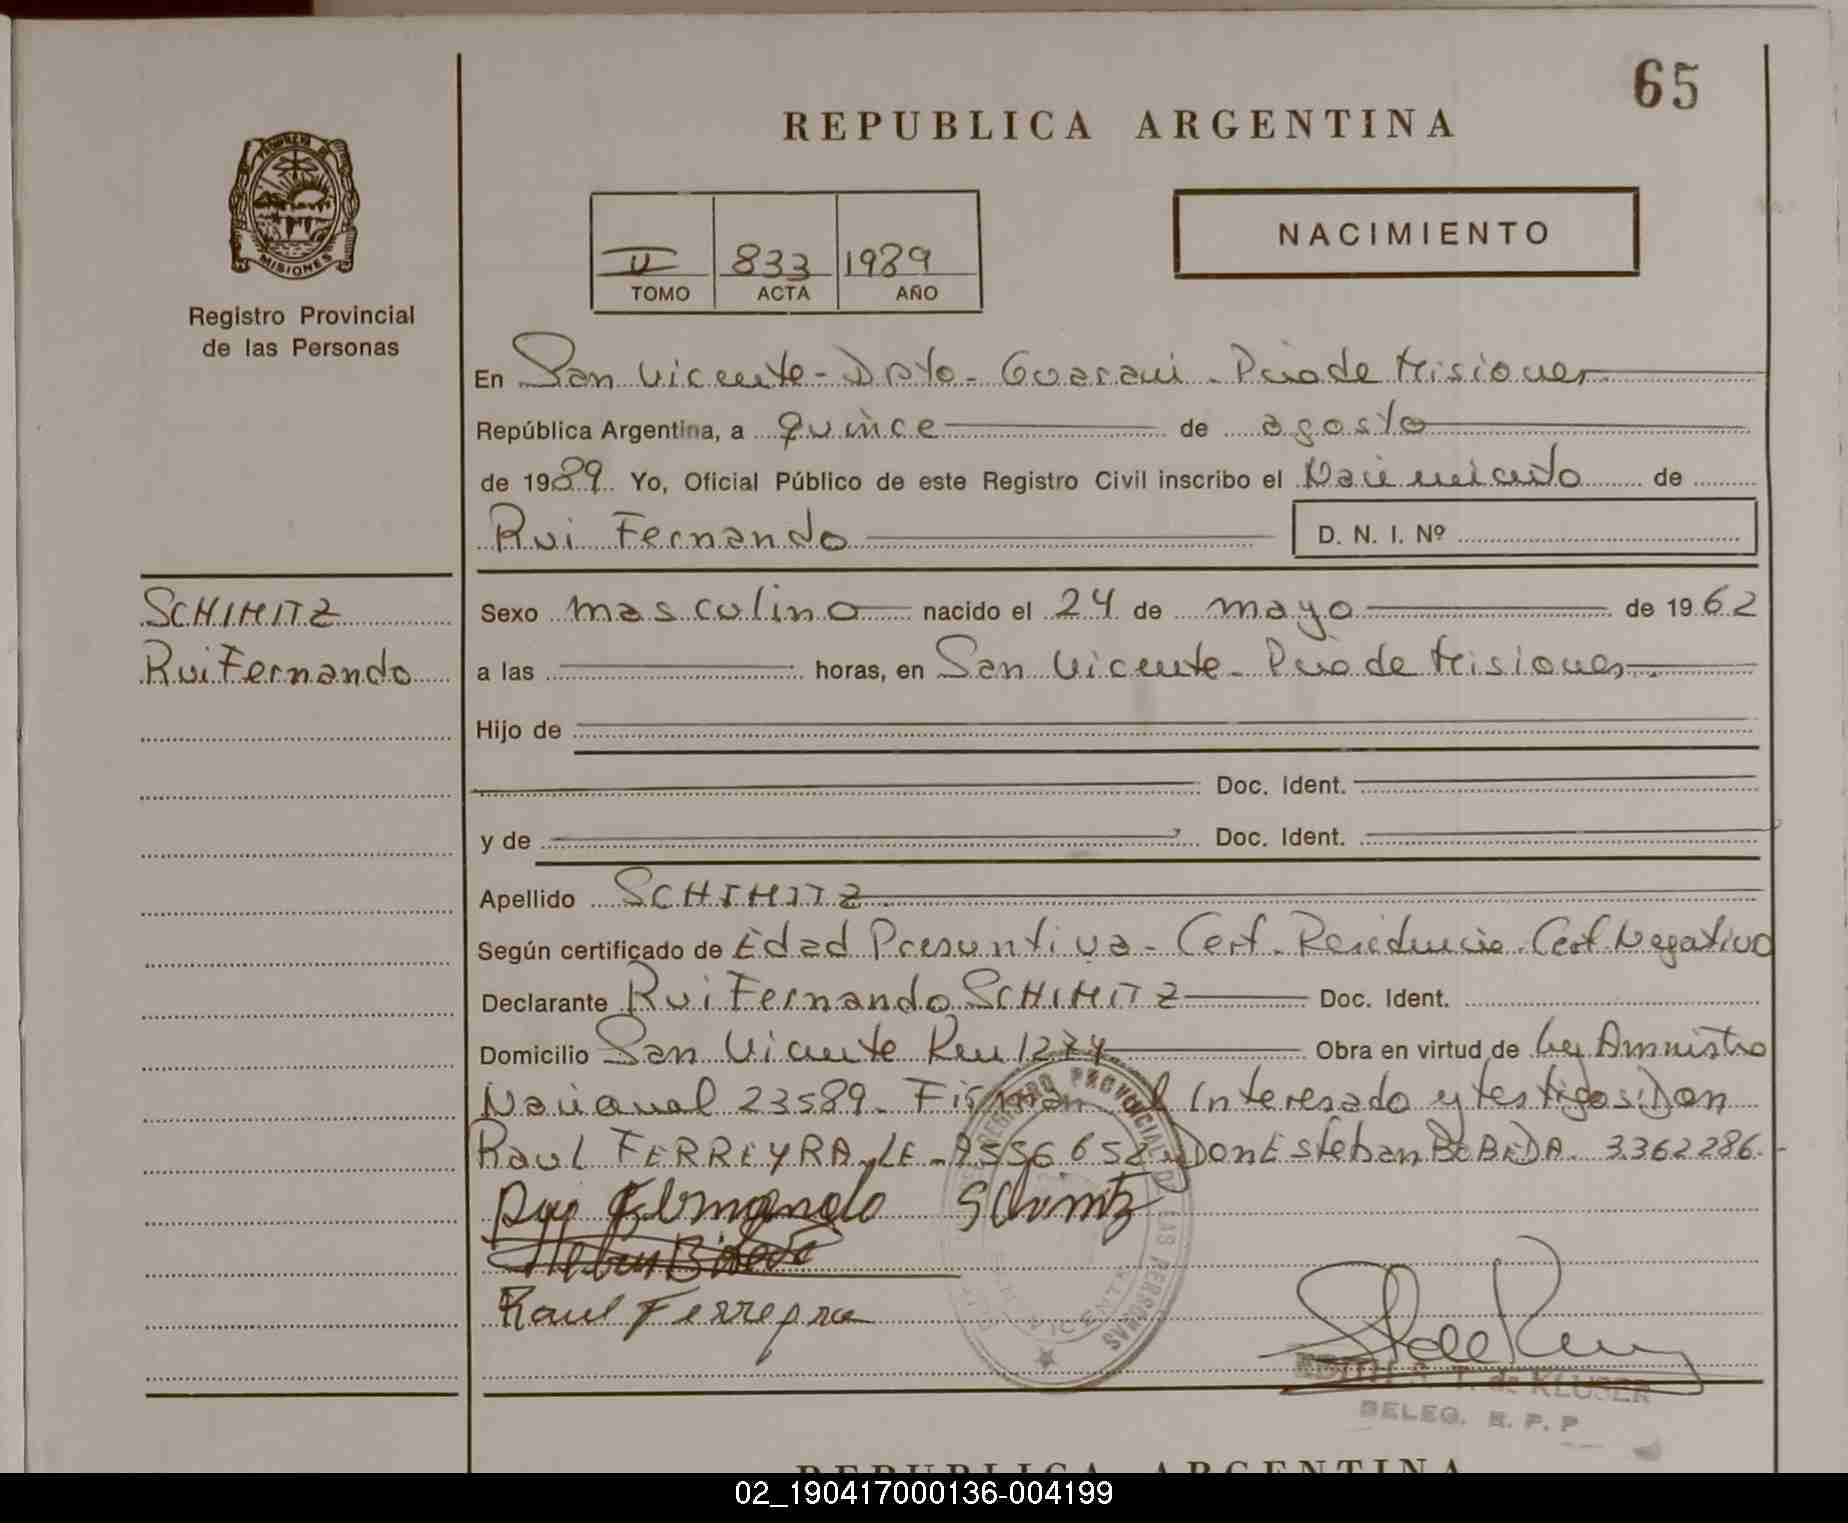 65
REPUBLICA ARGENTINA
PROVINCIA DE
MISIONES
Registro Provincial
de las Personas
NACIMIENTO
II 833 1989
TOMO ACTA AÑO
En San Vicente - Dpto - Guaraní - Pcia de Misiones
República Argentina, a quince de agosto
de 1989. Yo, Oficial Público de este Registro Civil inscribo el Nacimiento de
Rui Fernando D. N. I. Nº
SCHIMITZ
Rui Fernando
Sexo masculino nacido el 24 de mayo de 1962
a las horas, en San Vicente - Pcia de Misiones
Hijo de
Doc. Ident.
y de Doc. Ident.
Apellido SCHIMITZ
Según certificado de Edad Presuntiva - Cert. Residencia - Cert Negativo
Declarante Rui Fernando SCHIMITZ Doc. Ident.
Domicilio San Vicente Km 1274 Obra en virtud de Ley Amnistro
Nacional 23589. Firman el Interesado y testigos: Don
Raul FERREYRA. LE - 7556652 Don Esteban BOBEDA. 3362286.
Rui Fernando Schimitz
Raul Ferreyra
REGISTRO PROVINCIAL DE LAS PERSONAS
SAN VICENTE
EDITH S. T. de KLUSER
DELEG. R. P. P
REPUBLICA ARGENTINA
02_190417000136-004199